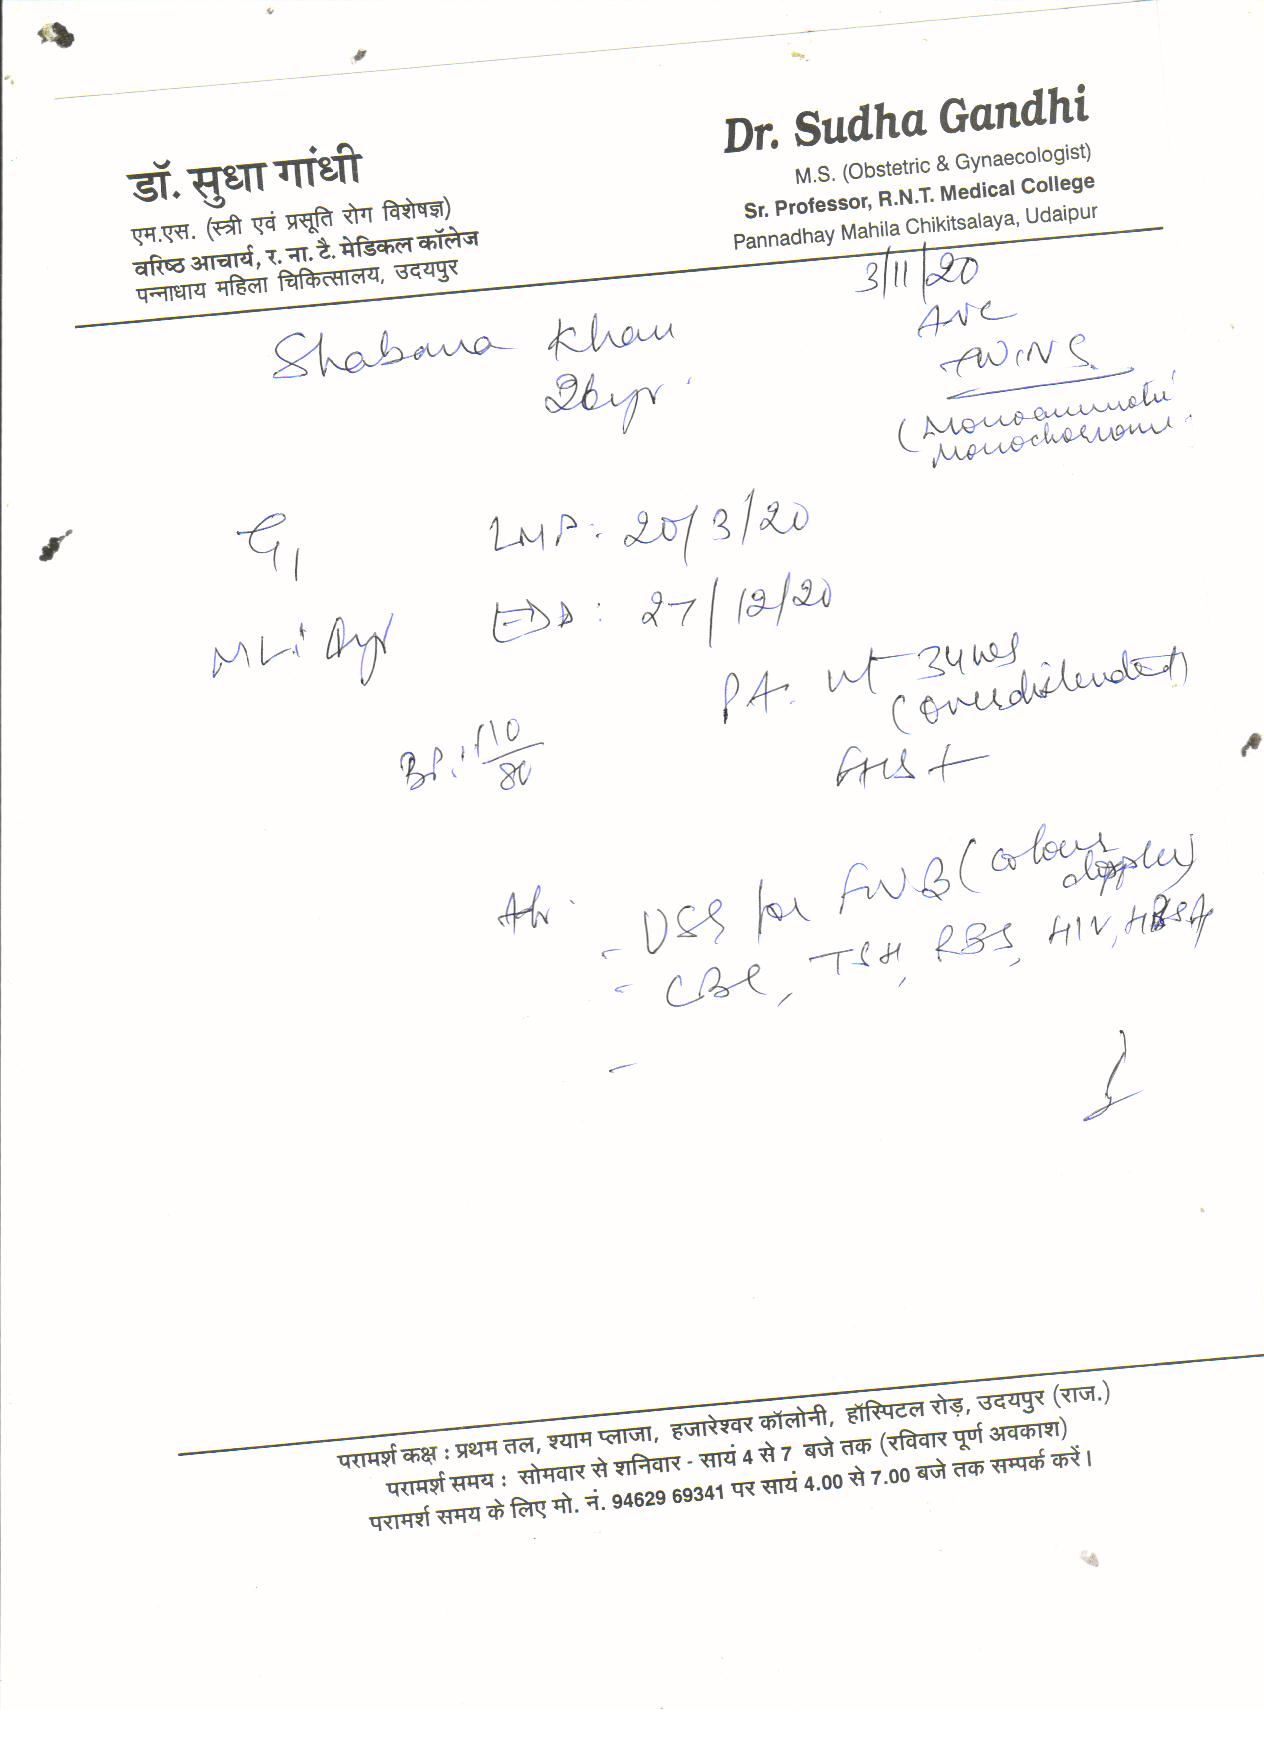 डॉ. सुधा गांधी
एम.एस. (स्त्री एवं प्रसूति रोग विशेषज्ञ)
वरिष्ठ आचार्य, र. ना. टै. मेडिकल कॉलेज
पन्नाधाय महिला चिकित्सालय, उदयपुर
Dr. Sudha Gandhi
M.S. (Obstetric & Gynaecologist)
Sr. Professor, R.N.T. Medical College
Pannadhay Mahila Chikitsalaya, Udaipur
3/11/20
ANC
TWINS
(Monoamniotic
Monochorionic
Shabana Khan
26yr.
G1
LMP: 20/3/20
EDD: 27/12/20
PA. ut 34wks
(overdistended)
BP: 110/80
FHS +
- USG for FWB (colour doppler)
- CBC, TSH, RBS, HIV, HBSA
-
परामर्श कक्ष : प्रथम तल, श्याम प्लाजा, हजारेश्वर कॉलोनी, हॉस्पिटल रोड़, उदयपुर (राज.)
परामर्श समय : सोमवार से शनिवार - सायं 4 से 7 बजे तक (रविवार पूर्ण अवकाश)
परामर्श समय के लिए मो. नं. 94629 69341 पर सायं 4.00 से 7.00 बजे तक सम्पर्क करें।